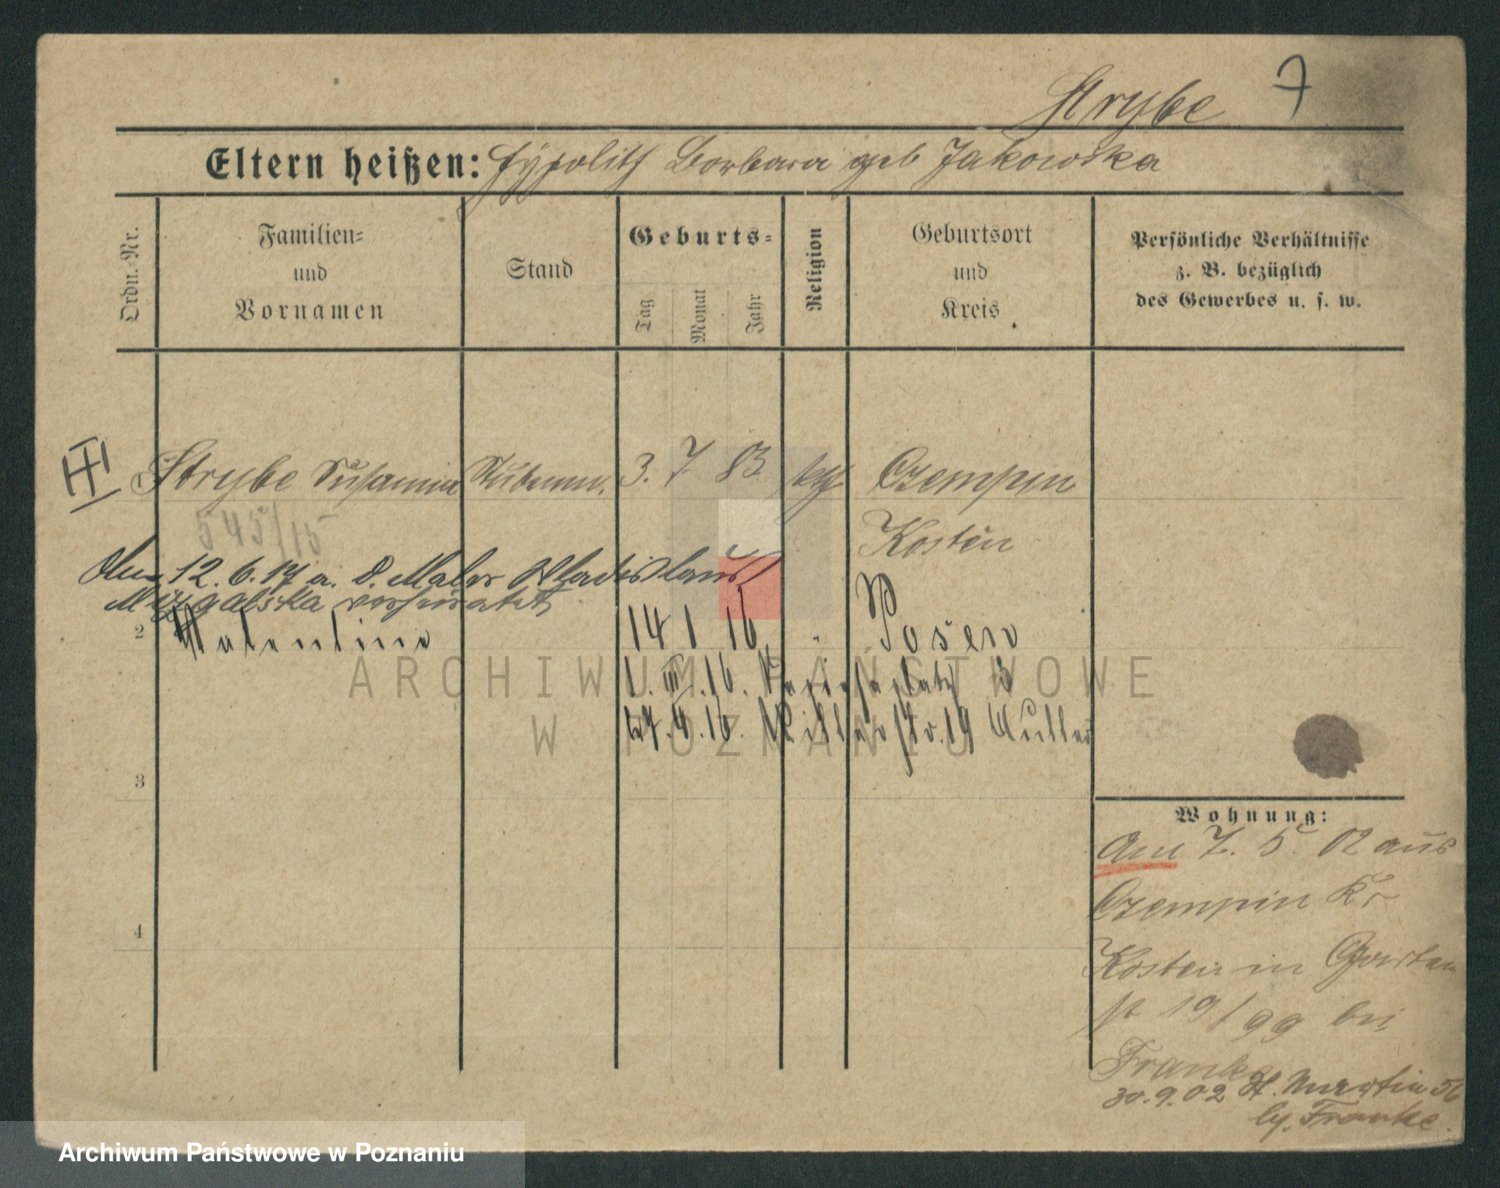 Strybe 7
Eltern heißen: Hypolith Barbara geb Jakowska
Ordn.-Nr.
Familien-
und
Vornamen
Stand
Geburts-
Tag
Monat
Jahr
Religion
Geburtsort
und
Kreis
Persönliche Verhältnisse
z. B. bezüglich
des Gewerbes u. s. w.
1 Strybe Susanna 3. 7. 83 kth Czempin
545/15
Kosten
Am 12.6.17 a. d. Maler Wladislaus
verheiratet
2 Valentine 14 1 16 " Posen
1. III. 16.
27. 4. 16. 19
3
4
Wohnung:
Am 7. 5. 02 aus
Czempin Kr
Kosten in Garten
st 19/99 bei
Franke
30.9.02 St. Martin 56
by. Franke.
ARCHIWUM PAŃSTWOWE
W POZNANIU
Archiwum Państwowe w Poznaniu